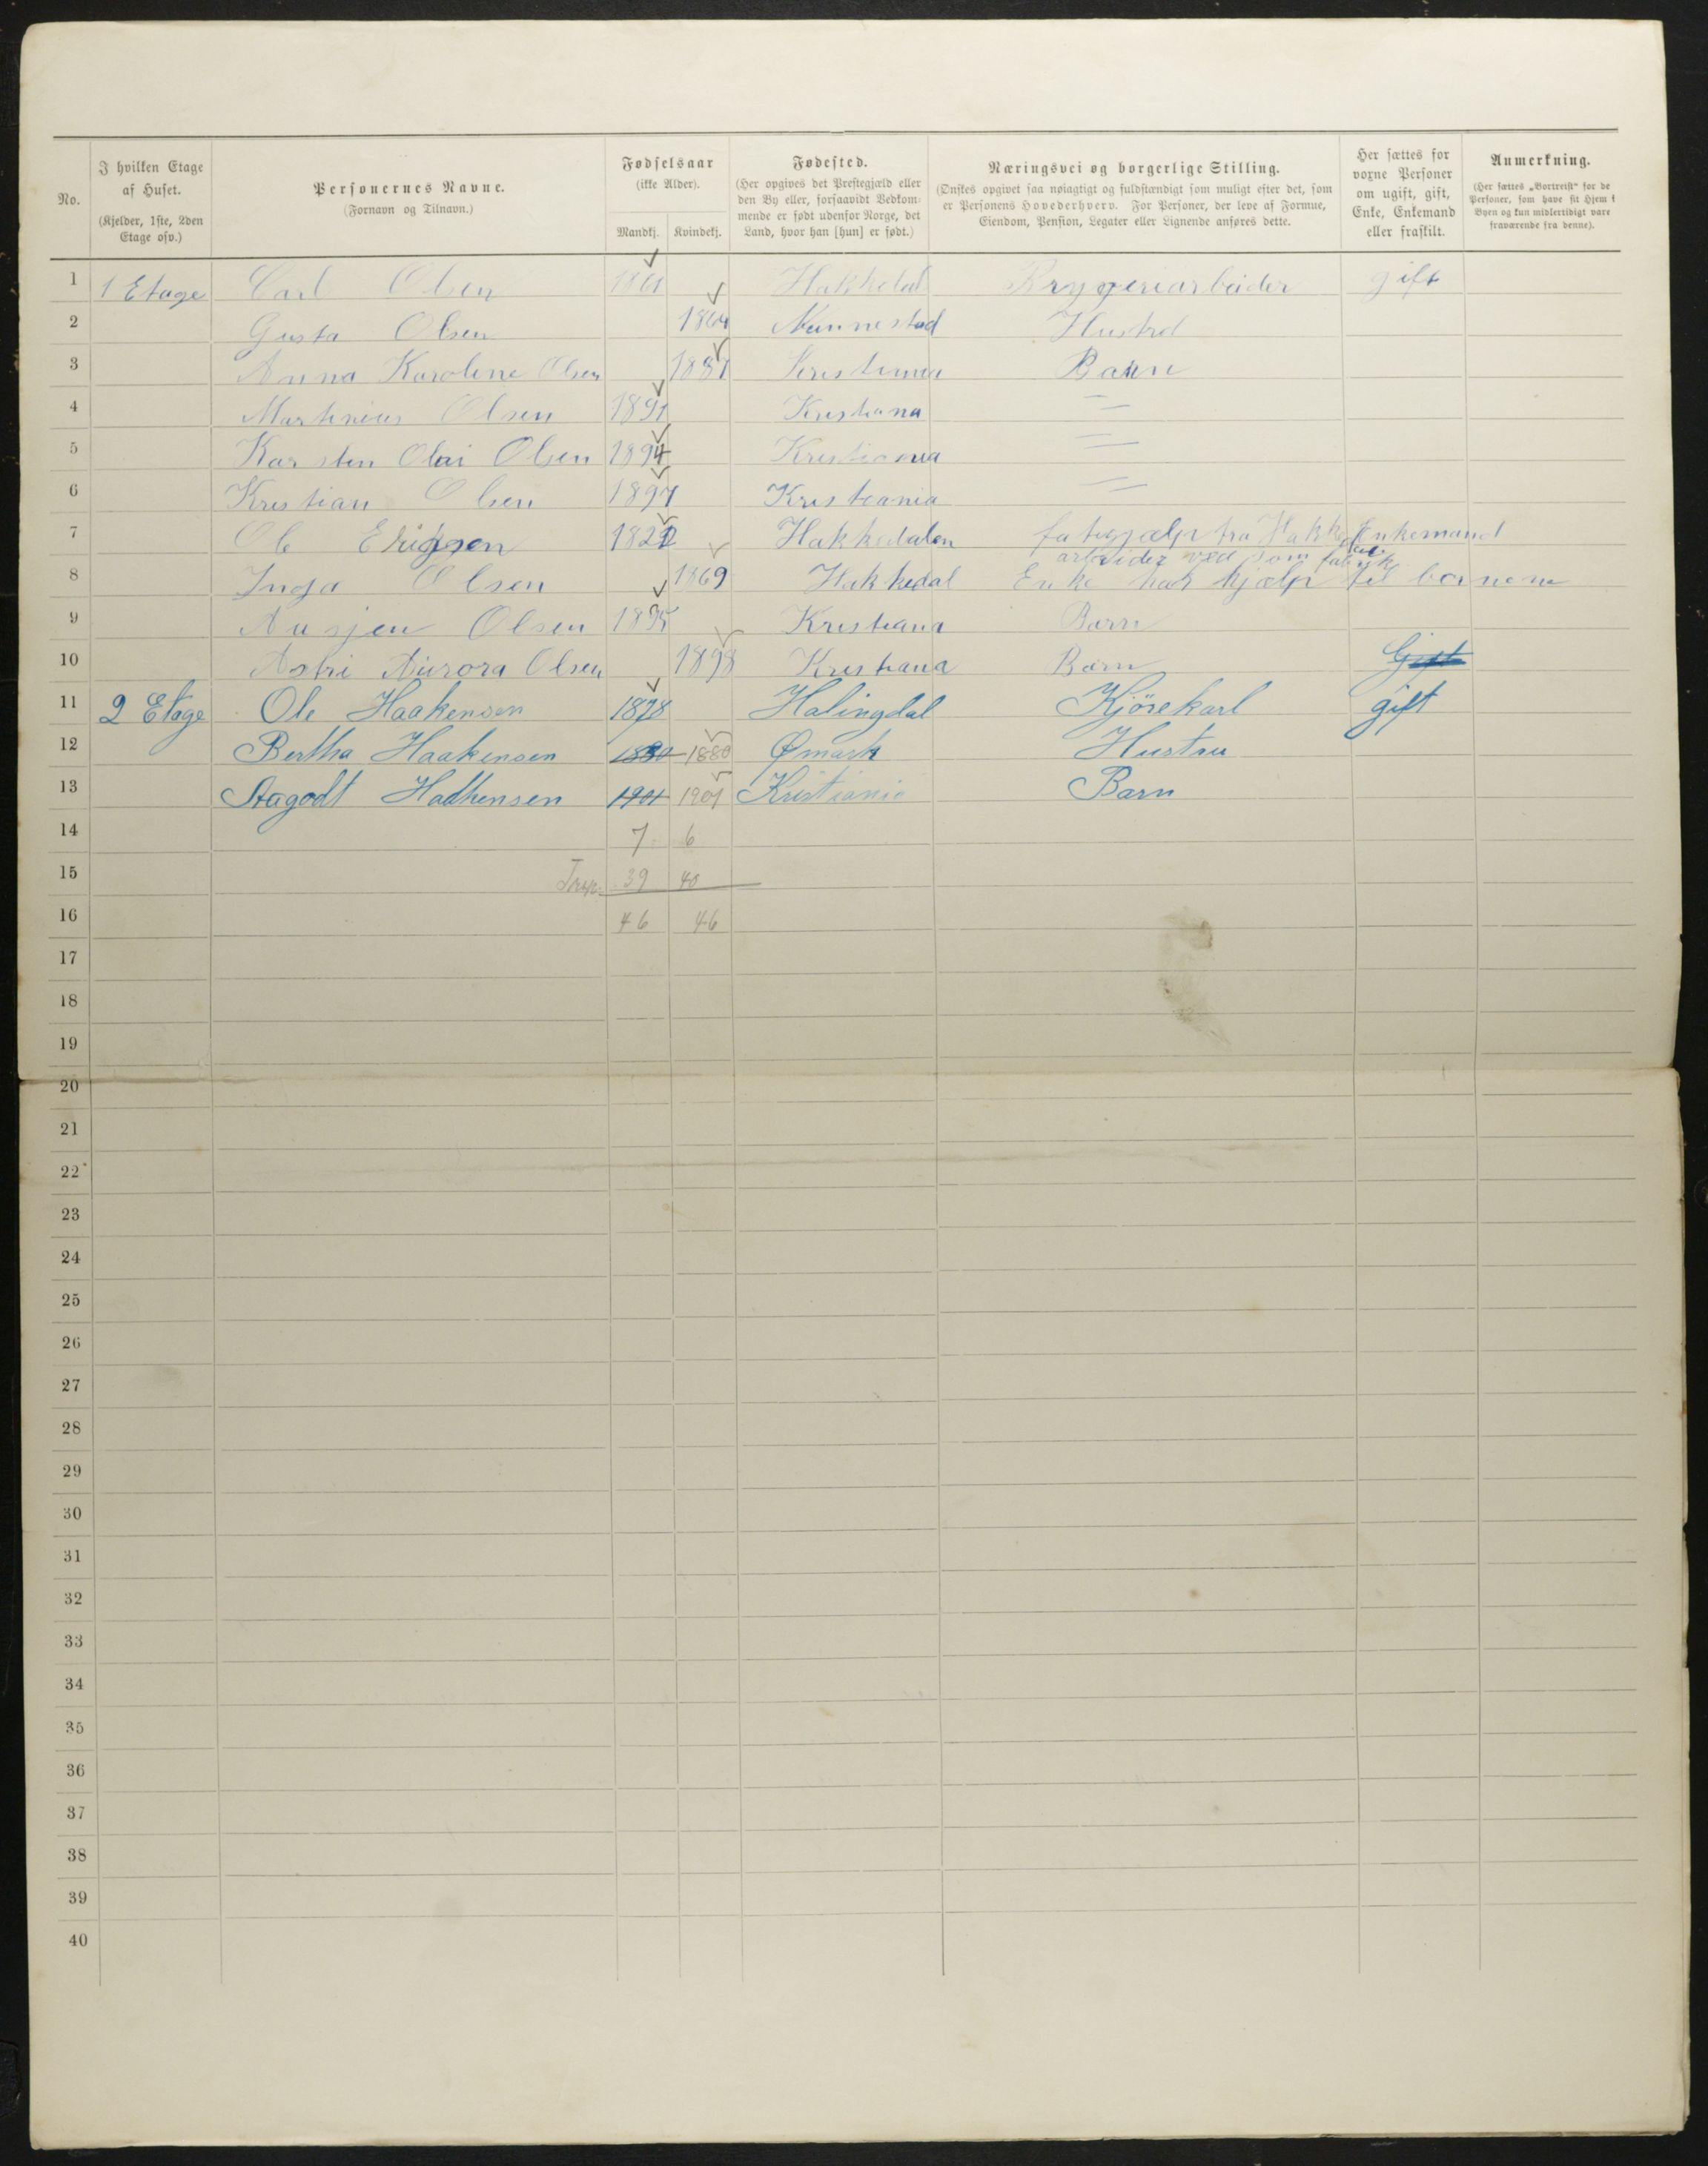 No.
I hvilken Etage af Huset.
(Kjelder, 1ste, 2den Etage osv.)
Personernes Navne.
(Fornavn og Tilnavn.)
Fødselsaar
(ikke Alder).
Mandkj. Kvindekj.
Fødested.
(Her opgives det Præstegjæld eller
den By eller, forsaavidt Vedkom-
mende er født udenfor Norge, det
Land, hvor han [hun] er født.)
Næringsvei og borgerlige Stilling.
(Ønskes opgivet saa nøiagtigt og fuldstændigt som muligt efter det, som
er Personens Hovederhverv. For Personer, der leve af Formue,
Eiendom, Pension, Legater eller Lignende anføres dette.
Her sættes for
voxne Personer
om ugift, gift,
Enke, Enkemand
eller fraskilt.
Anmerkning.
(Her sættes „Bortreist“ for de
Personer, som have sit Hjem i
Byen og kun midlertidigt vare
fraværende fra denne).
1 1 Etage Carl Olsen 1861 Hakkedal Bryggeriarbeider gift
2 Gusta Olsen 1864 Nannestad Hustrd
3 Anna Karoline Olsen 1881 Barn
4 Martinius Olsen 1891 Kristiana —
5 Karsten Olai Olsen 1894 Kristiania —
6 Kristian Olsen 1897 Kristiania —
7 Ole Eriksen 1822 Hakkedalen fatigjælp fra Enkemand
arbeider ved som
8 Inga Olsen 1869 Hakkedal Enke har hjælp til barnene
9 Olsen 1895 Kristiana Barn
10 Astri Aurora Olsen 1898 Kristiana Barn Gift
11 2 Etage Ole Haakensen 1878 Halingdal Kjörekarl gift
12 Bertha Haakensen 1880 1880 Ømark Hustru
13 Aagodt Haakensen 1901 1901 Kristiania Barn
14 7 6
15 39 40
16 46 46
17
18
19
20
21
22
23
24
25
26
27
28
29
30
31
32
33
34
35
36
37
38
39
40